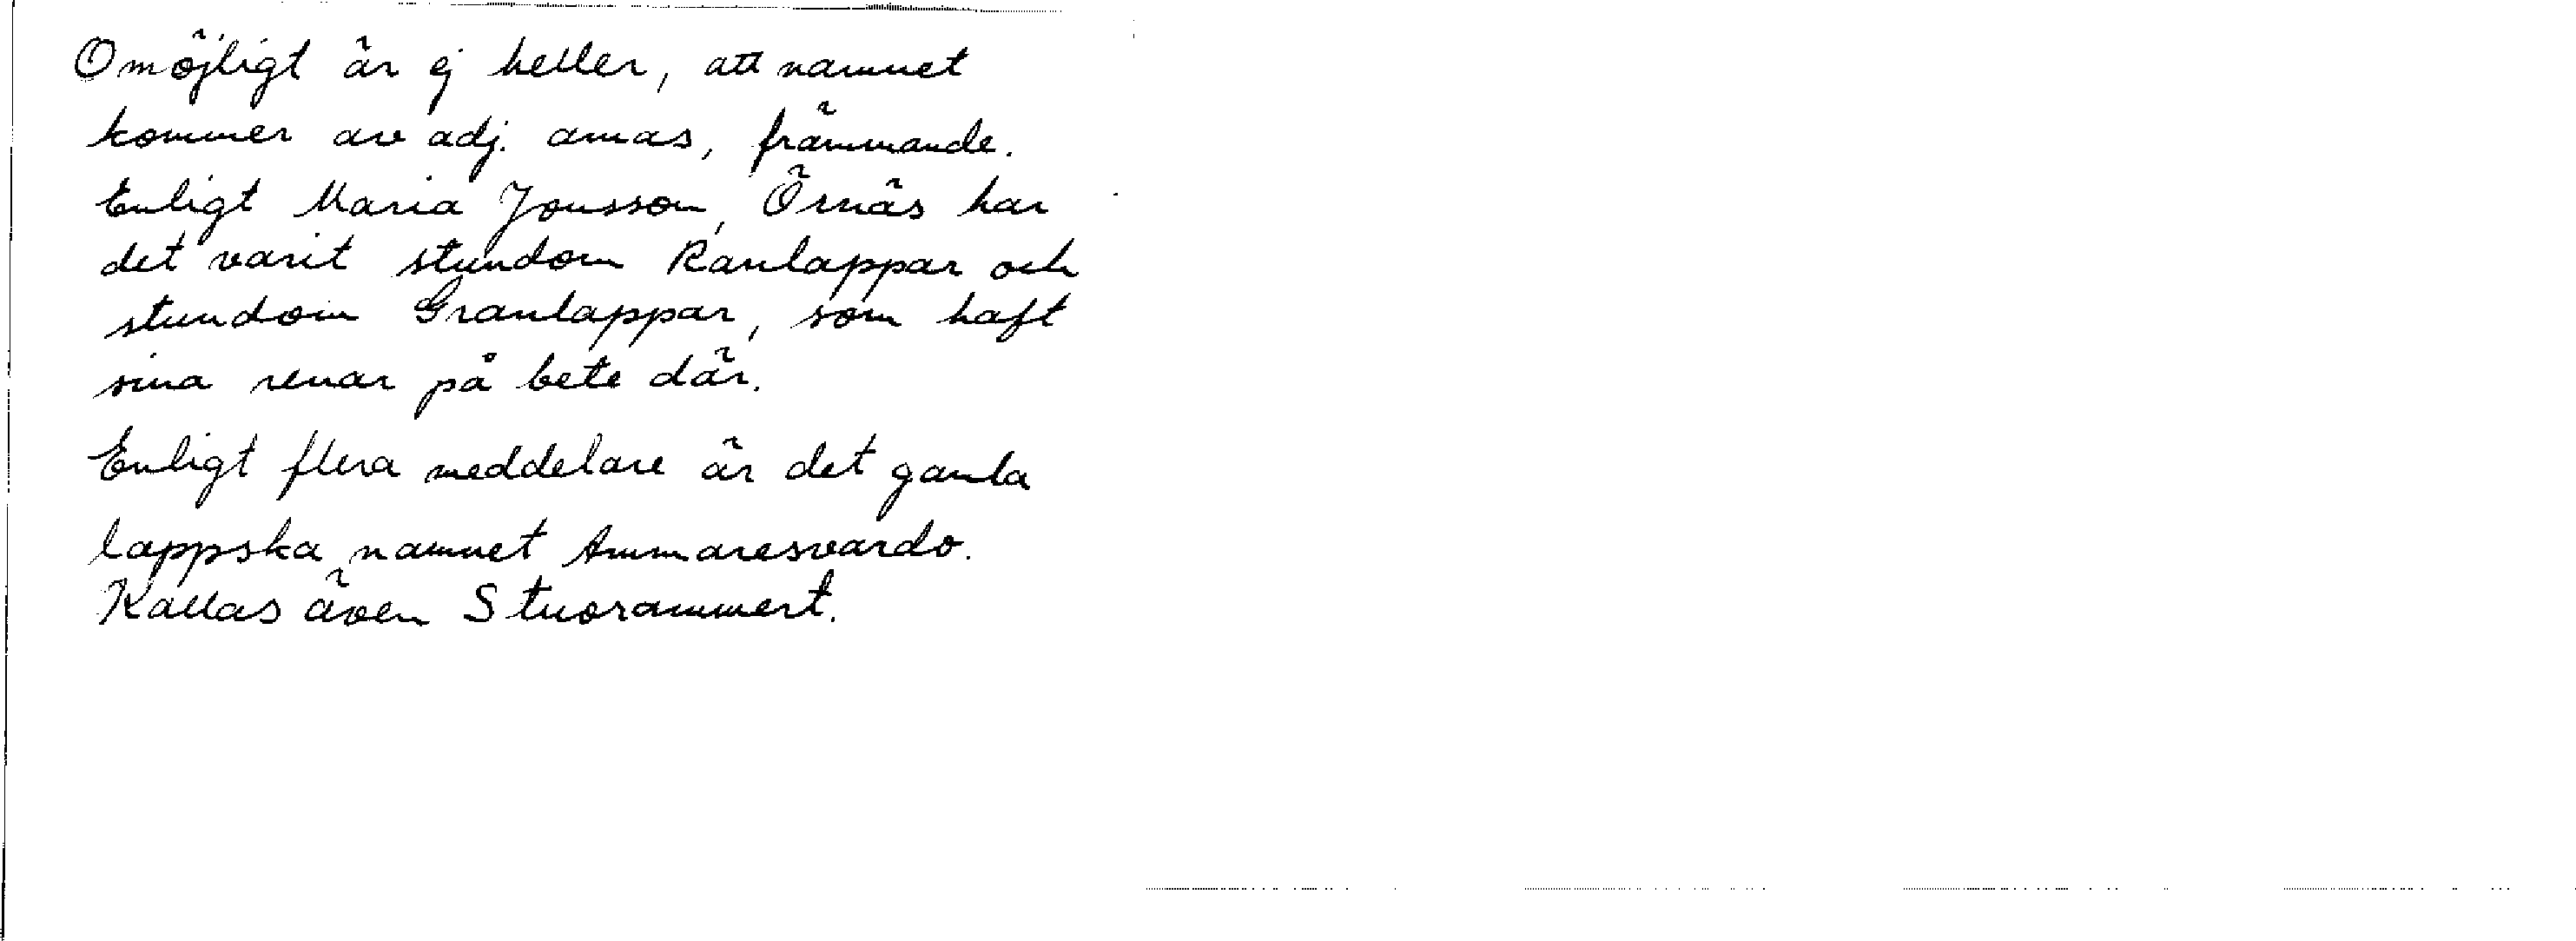 Omöjligt är ej heller, att namnet
kommer av adj. amas, främmande.
Enligt Maria Jonsson, Örnäs har
det varit stundom Ranlappar och
stundom Granlappar, som haft
sina renar på bete där.
Enligt flera meddelare är det gamla
lappska namnet Ammaresvardo.
Kallas även Stuorammert.